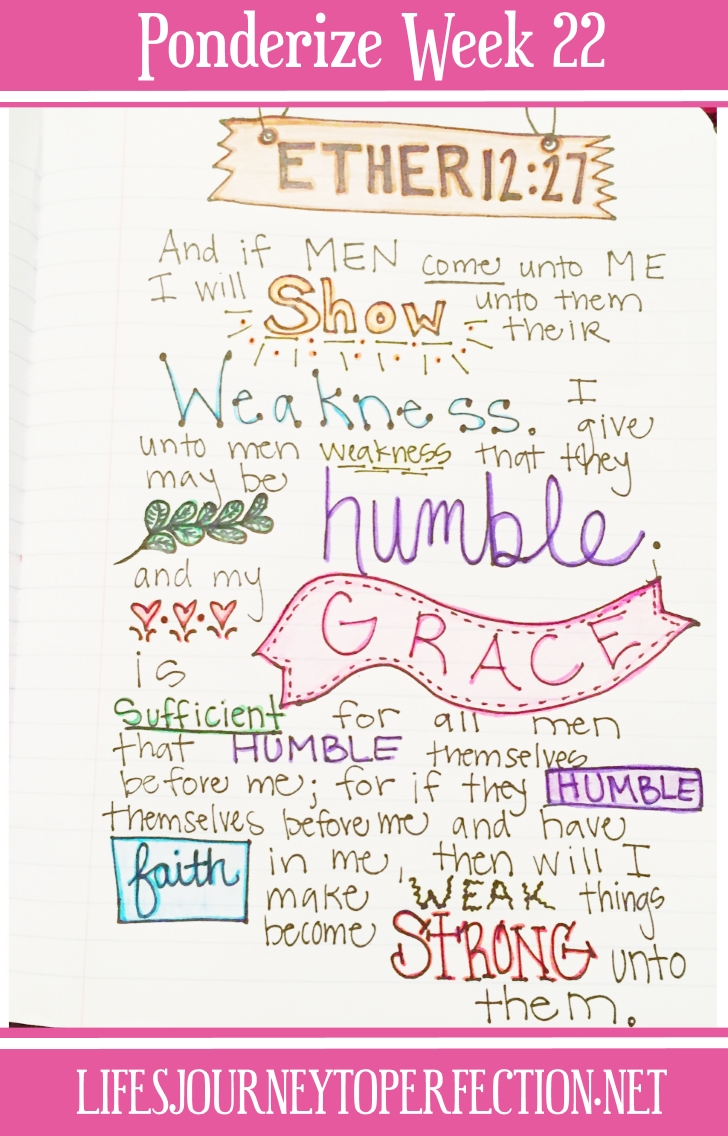 Ponderize Week 22
ETHER 12:27
And if MEN come unto ME
I will Show unto them
their
Weakness. I
give
unto men weakness that they
may be
humble;
and my
GRACE
is
Sufficient for all men
that HUMBLE themselves
before me; for if they HUMBLE
themselves before me and have
faith in me, then will I
make WEAK things
become STRONG unto
them.
LIFESJOURNEYTOPERFECTION.NET